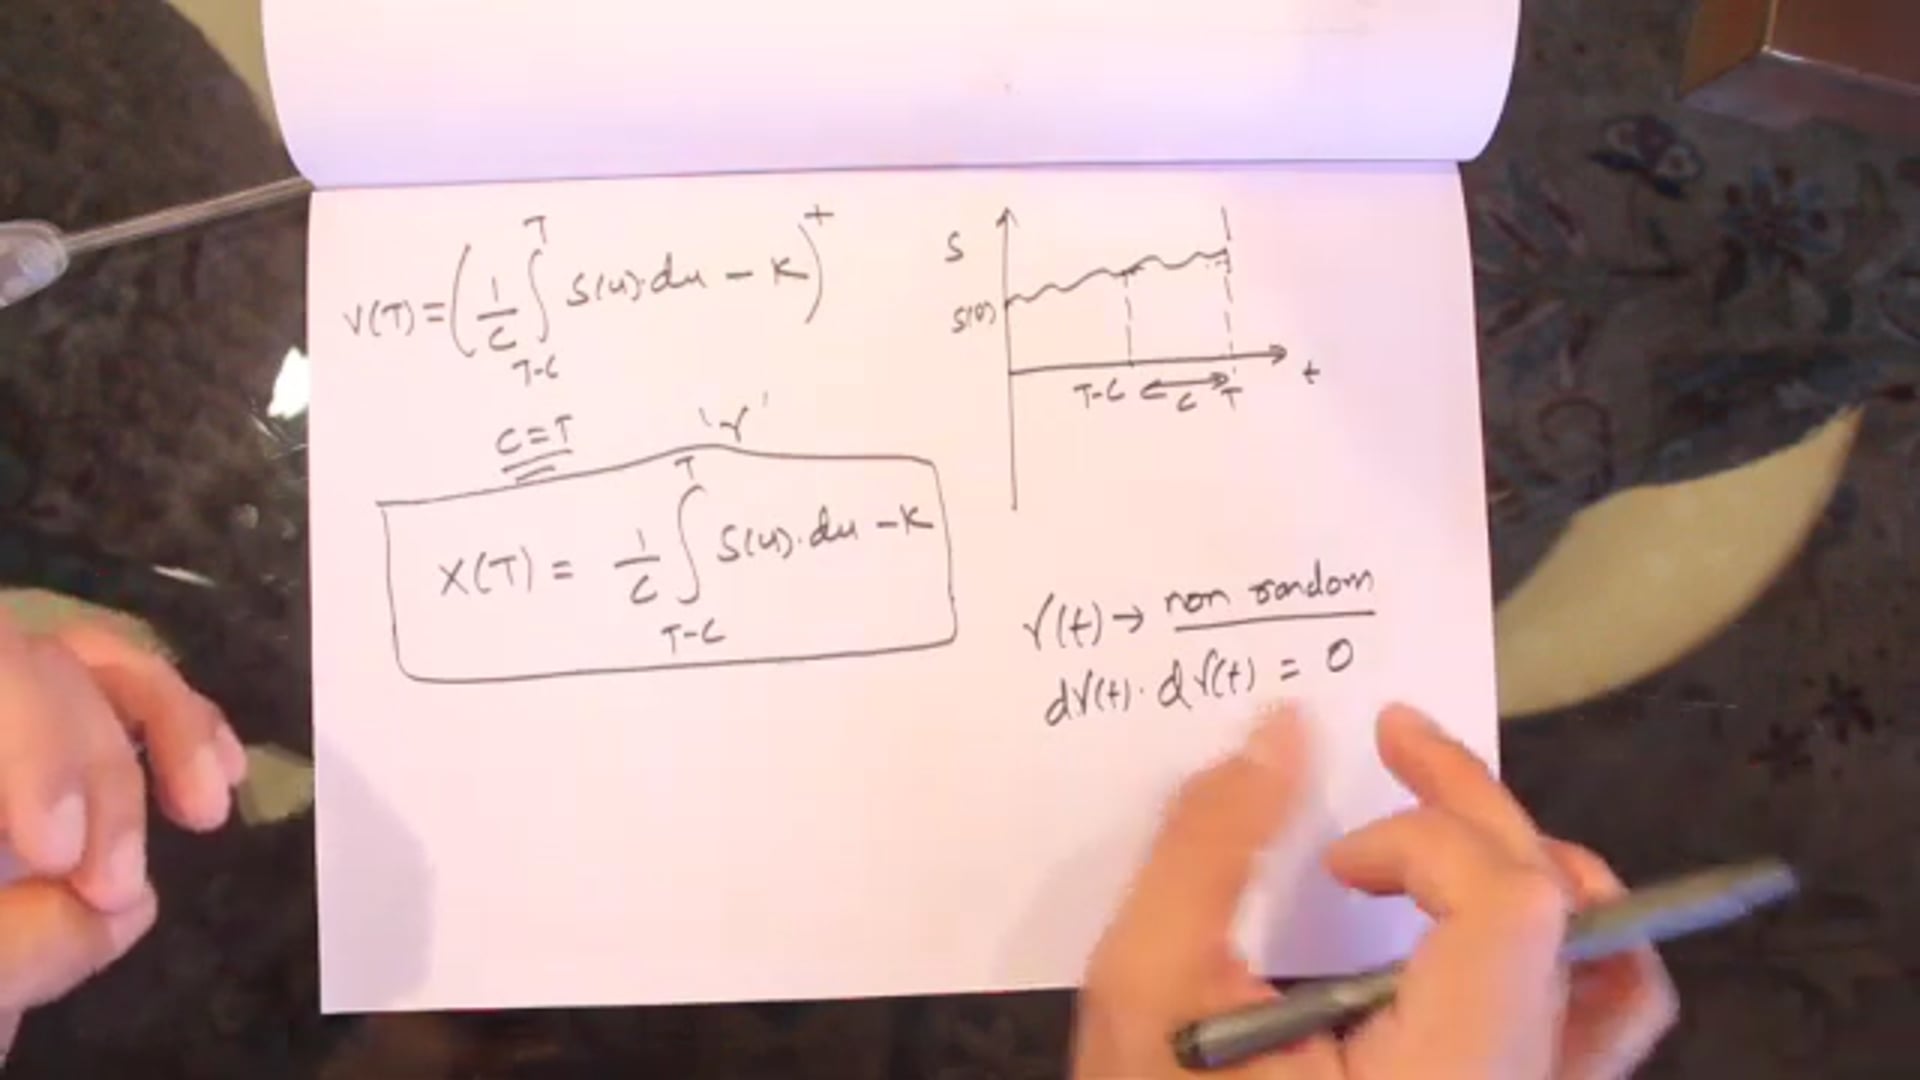 V(T) = ( 1/c ∫_{T-c}^{T} S(u)·du - K )^+
c=T
'γ'
X(T) = 1/c ∫_{T-c}^{T} S(u)·du - K
S
S(0)
T-c ↔ c T
t
γ(t) → non random
dγ(t)·dγ(t) = 0